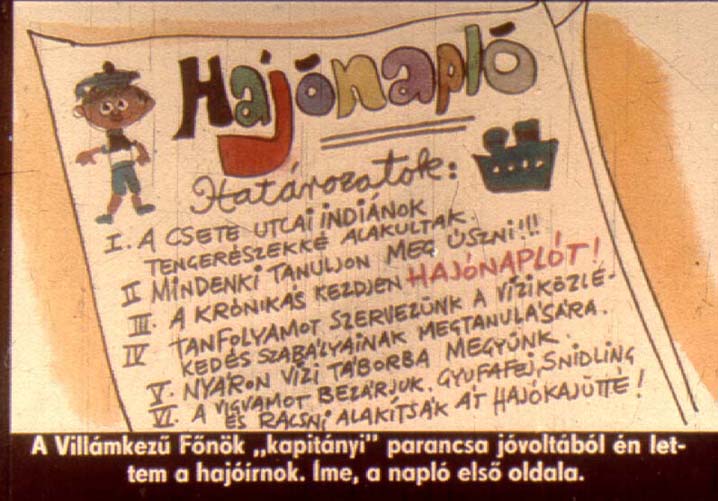 Hajónapló
Határozatok:
I. A CSETE UTCAI INDIÁNOK
TENGERÉSZEKKÉ ALAKULTAK.
II MINDENKI TANULJON MEG ÚSZNI!!!
III. A KRÓNIKÁS KEZDJEN HAJÓNAPLÓT!
IV TANFOLYAMOT SZERVEZÜNK A VÍZIKÖZLE-
KEDÉS SZABÁLYAINAK MEGTANULÁSÁRA.
V. NYÁRON VÍZI TÁBORBA MEGYÜNK.
VI. A VIGVAMOT BEZÁRJUK. GYUFAFEJ, SNIDLING
ÉS RACSNI ALAKÍTSÁK ÁT HAJÓKAJÜTTÉ!
A Villámkezű Főnök „kapitányi" parancsa jóvoltából én let-
tem a hajóírnok. Íme, a napló első oldala.